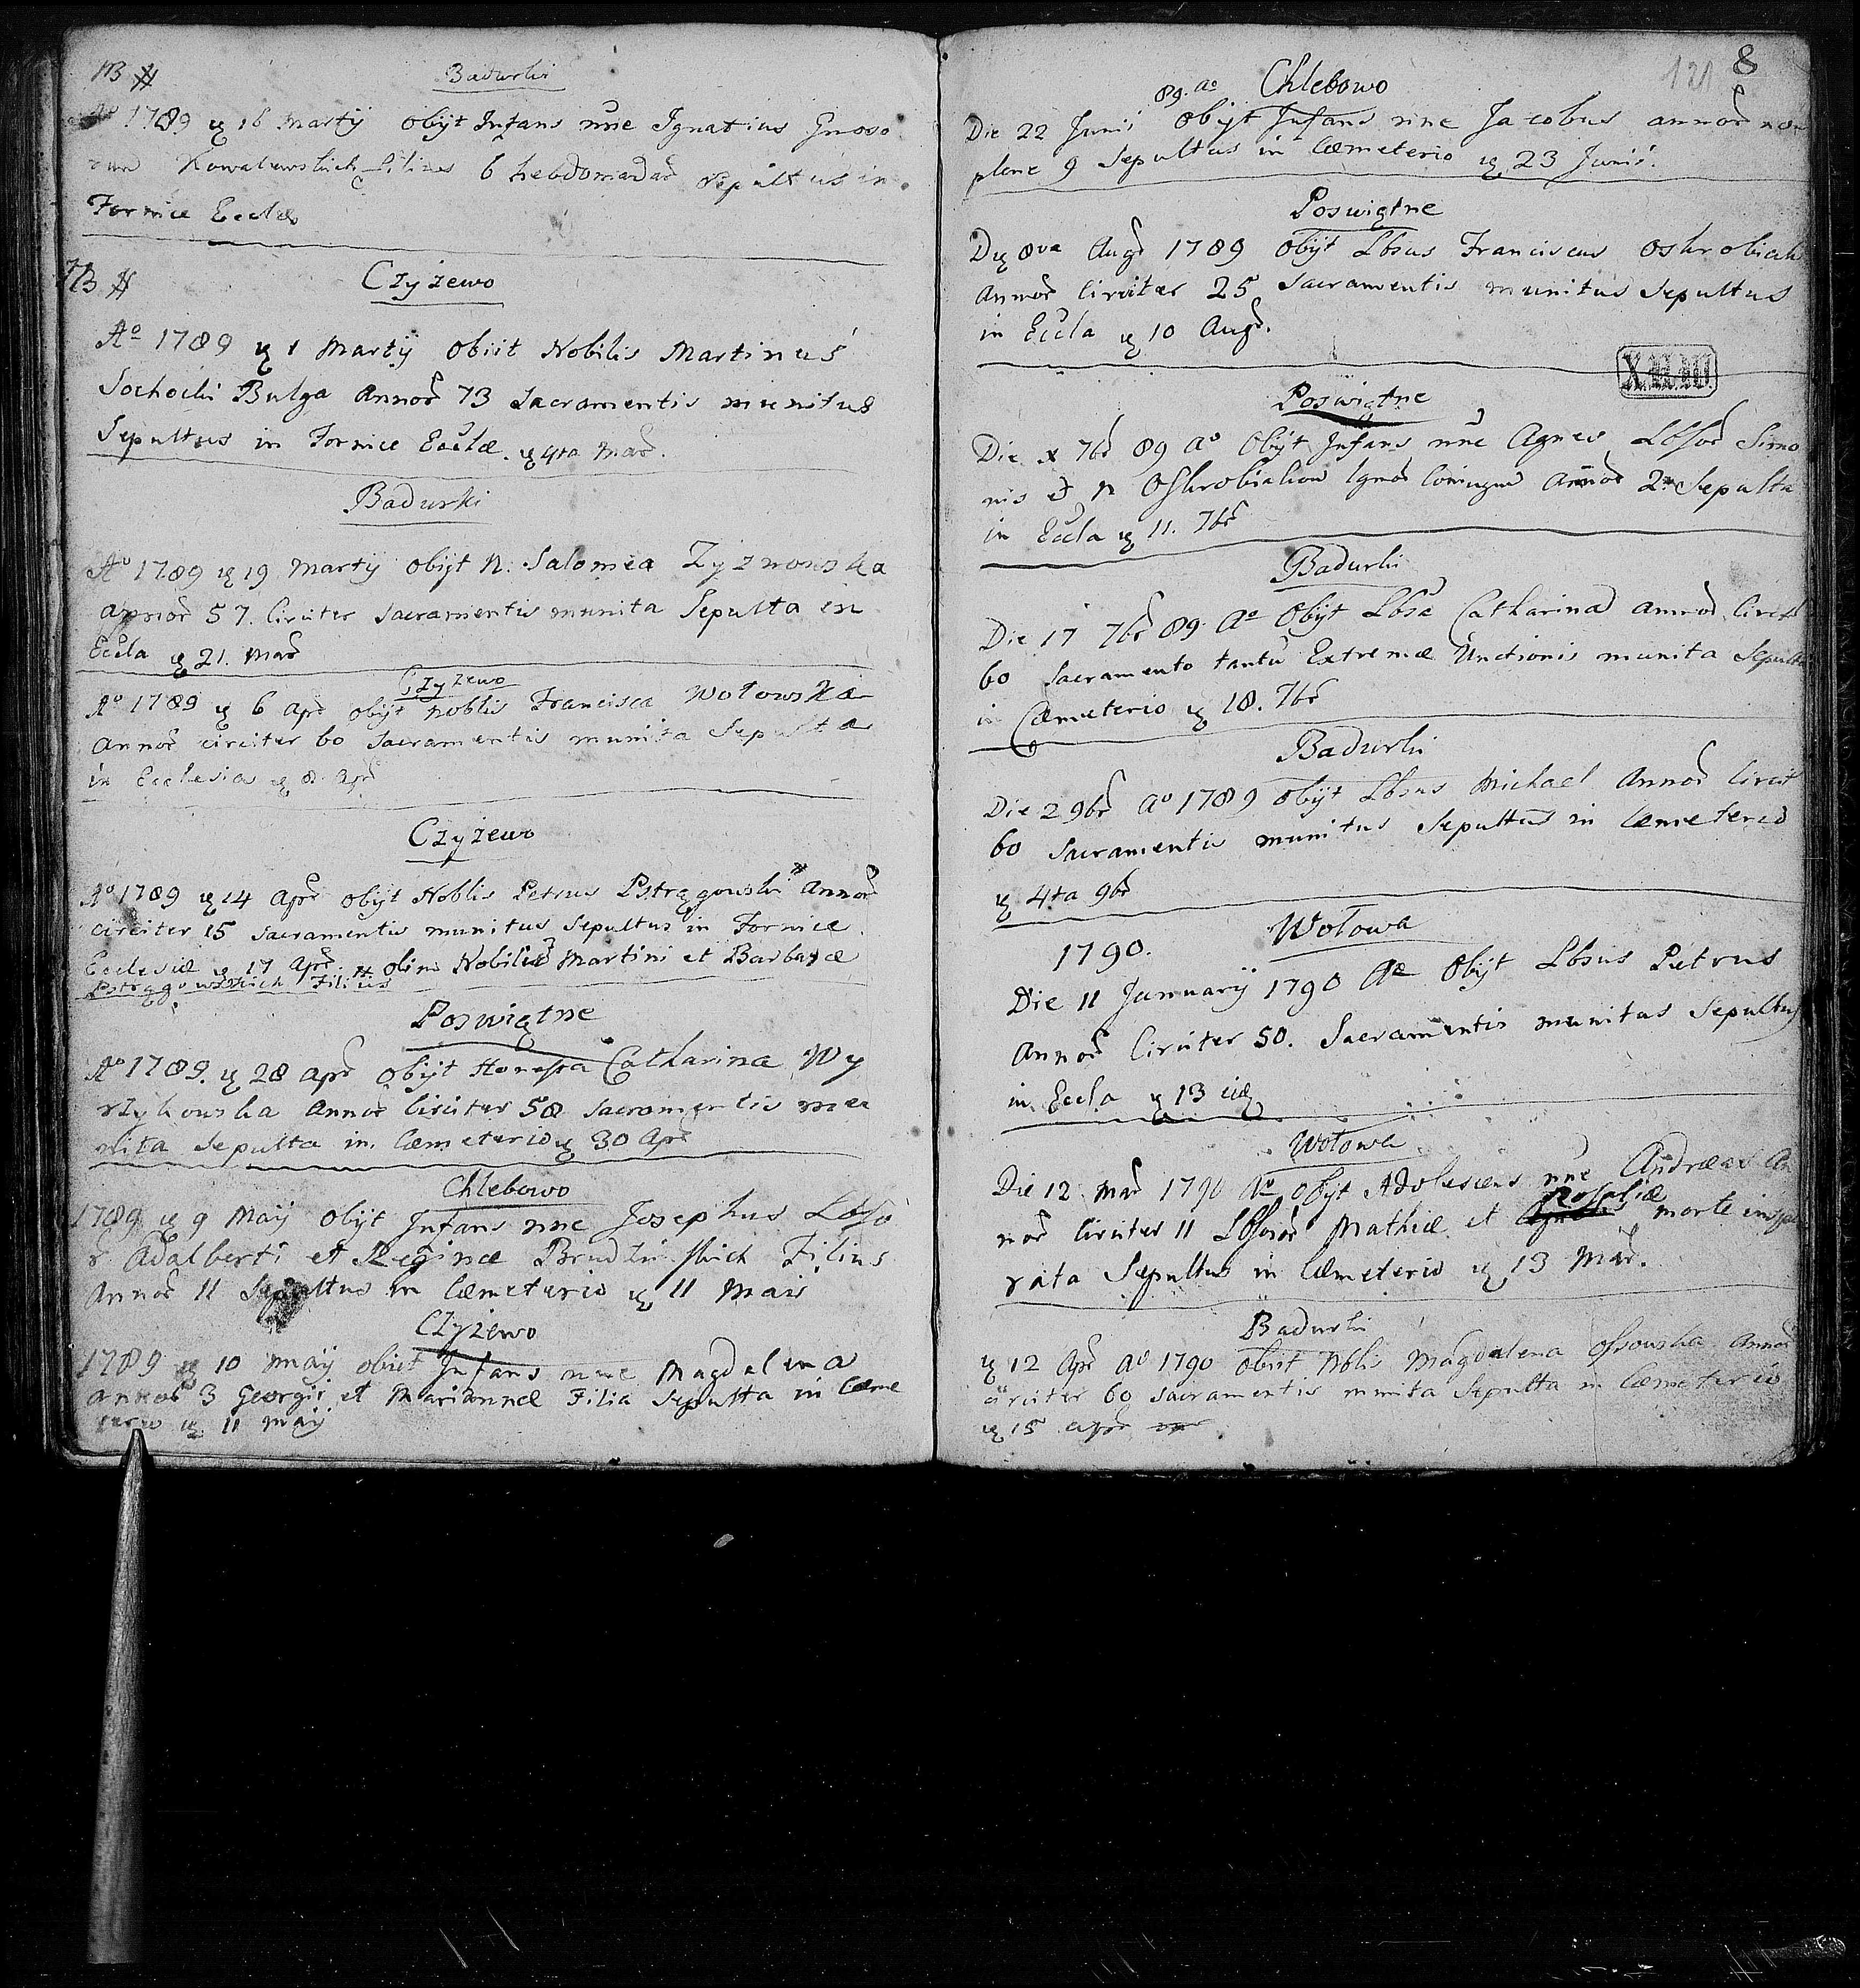 NB #
Badurki
Aº 1789 ę 16 Martÿ obÿt Infans nne Ignatius Gnoso
rum Kowalewskich Filius 6 hebdomadar Sepultus in
Fornice Ecclæ
NB #
Czyżewo
Aº 1789 ę 1 Martÿ Obiit Nobilis Martinus
Sochocki Bulga Annor 73 Sacramentis munitus
Sepultus in Fornice Ecclæ. ę 4ta Mar.
Badurki
Aº 1789 ę 19 Martÿ obÿt N. Salomea Zyznowska
annor 57. Circiter Sacramentis munita Sepulta in
Eccla ę 21. Mar
Czyzewo
Aº 1789 ę 6 Apr obÿt Noblis Francisca Wołowska
Annor circiter 60 Sacramentis munita Sepulta
in Ecclesia ę 8 Apr
Czyżewo
Aº 1789 ę 14 Apr obÿt Noblis Petrus Pstrągowski # Annor
circiter 15 Sacramentis munitus Sepultus in Fornice
Ecclesiæ ę 17 Apr # olim Nobiliū Martini et Barbaræ
Pstrągowskich Filius
Poswiętne
Aº 1789. ę 28 Apr obÿt Honesta Catharina Wy
rzykowska Annor Circiter 58 Sacramentis mu
nita Sepulta in Cœmeterio ę 30 Apr
Chlebowo
1789 ę 9 Maÿ obÿt Infans nne Josephus Lbso
r Adalberti et Reginæ Brudlinskich Filius
Annor 11 Sepultus in Cœmeterio ę 11 Maii
Czyżewo
1789 ę 10 Maÿ obiit Infans nne Magdalena
annor 3 Georgii et Mariannæ Filia Sepulta in Cœme
terio ę 11 Maÿ
8
121
89. aº Chlebowo
Die 22 Junii Obÿt Infans nne Jacobus annor non
plene 9 Sepultus in Cœmeterio ę 23 Junii.
Poswiętne
Dię 8va Aug 1789 Obÿt Lbsus Franciscus Oskrobiak
Annor Circiter 25 Sacramentis munitus Sepultus
in Eccla ę 10 Aug.
Poswiętne
Die x 7br 89 aº Obÿt Infans nne Agnes Lbsor Simo
nis et N Oskrobiakow lgmor Coniugum Annor 2. Sepulta
in Eccla ę 11. 7br
Badurki
Die 17 7br 89. Aº Obÿt Lbsa Catharina annor Circit
60 Sacramento tantū Extremæ Unctionis munita Sepulta
in Cœmeterio ę 18. 7br
Badurki
Die 2 9br Aº 1789 obÿt Lbsus Michael Annor Circit
60 Sacramentis munitus Sepultus in Cœmeterio
ę 4ta 9br
1790. Wołowa
Die 11 Januarÿ 1790 Aº Obÿt Lbsus Petrus
Annor Circiter 50. Sacramentis munitus Sepultus
in Eccla ę 13
Wołowa
Die 12 Mar 1790 Aº obÿt Adolescens nne Andræas An
nor Circiter 11 Lbsoror Mathiæ et Rosaliæ morte inspe
rata Sepultus in Cœmeterio ę 13 Mar.
Badurki
ę 12 Apr Aº 1790 obiit Nblis Magdalena Ossowska Annor
circiter 60 Sacramentis munita Sepulta in Cœmeterio
ę 15 Apr